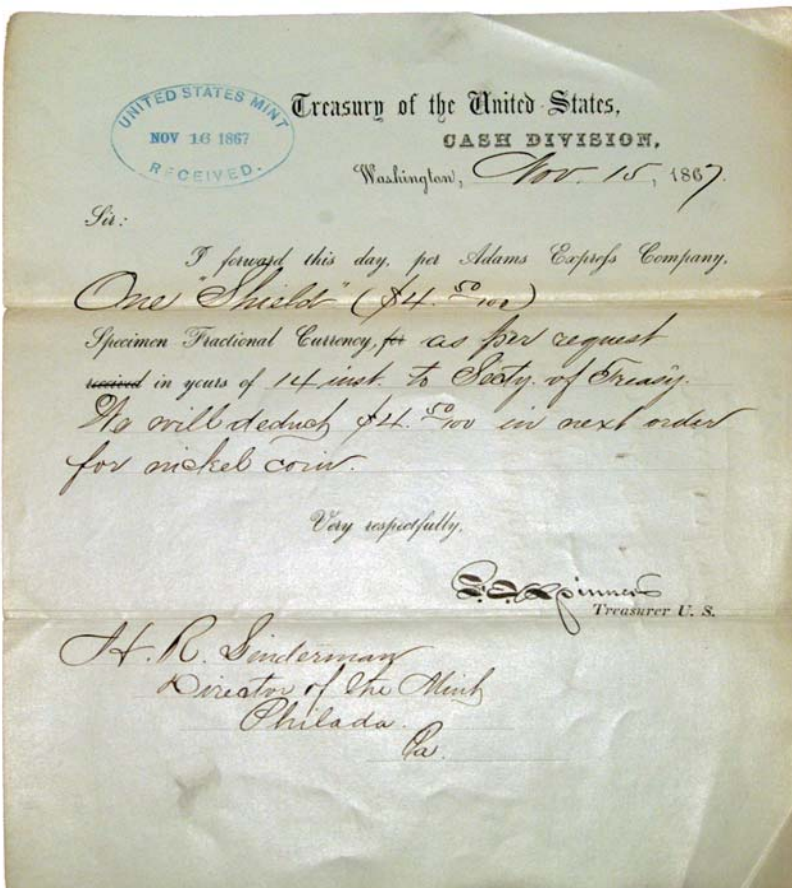 UNITED STATES MINT
NOV 16 1867
RECEIVED.
Treasury of the United States,
CASH DIVISION,
Washington, Nov. 15, 1867.
Sir:
I forward this day, per Adams Express Company,
One "Shield" ($4. 50/100)
Specimen Fractional Currency, for as per request
received in yours of 14 inst. to Secty. of Treasy.
We will deduct $4. 50/100 in next order
for nickel coin.
Very respectfully,
F. E. Spinner
Treasurer U. S.
H. R. Linderman
Director of the Mint
Philada.
Pa.